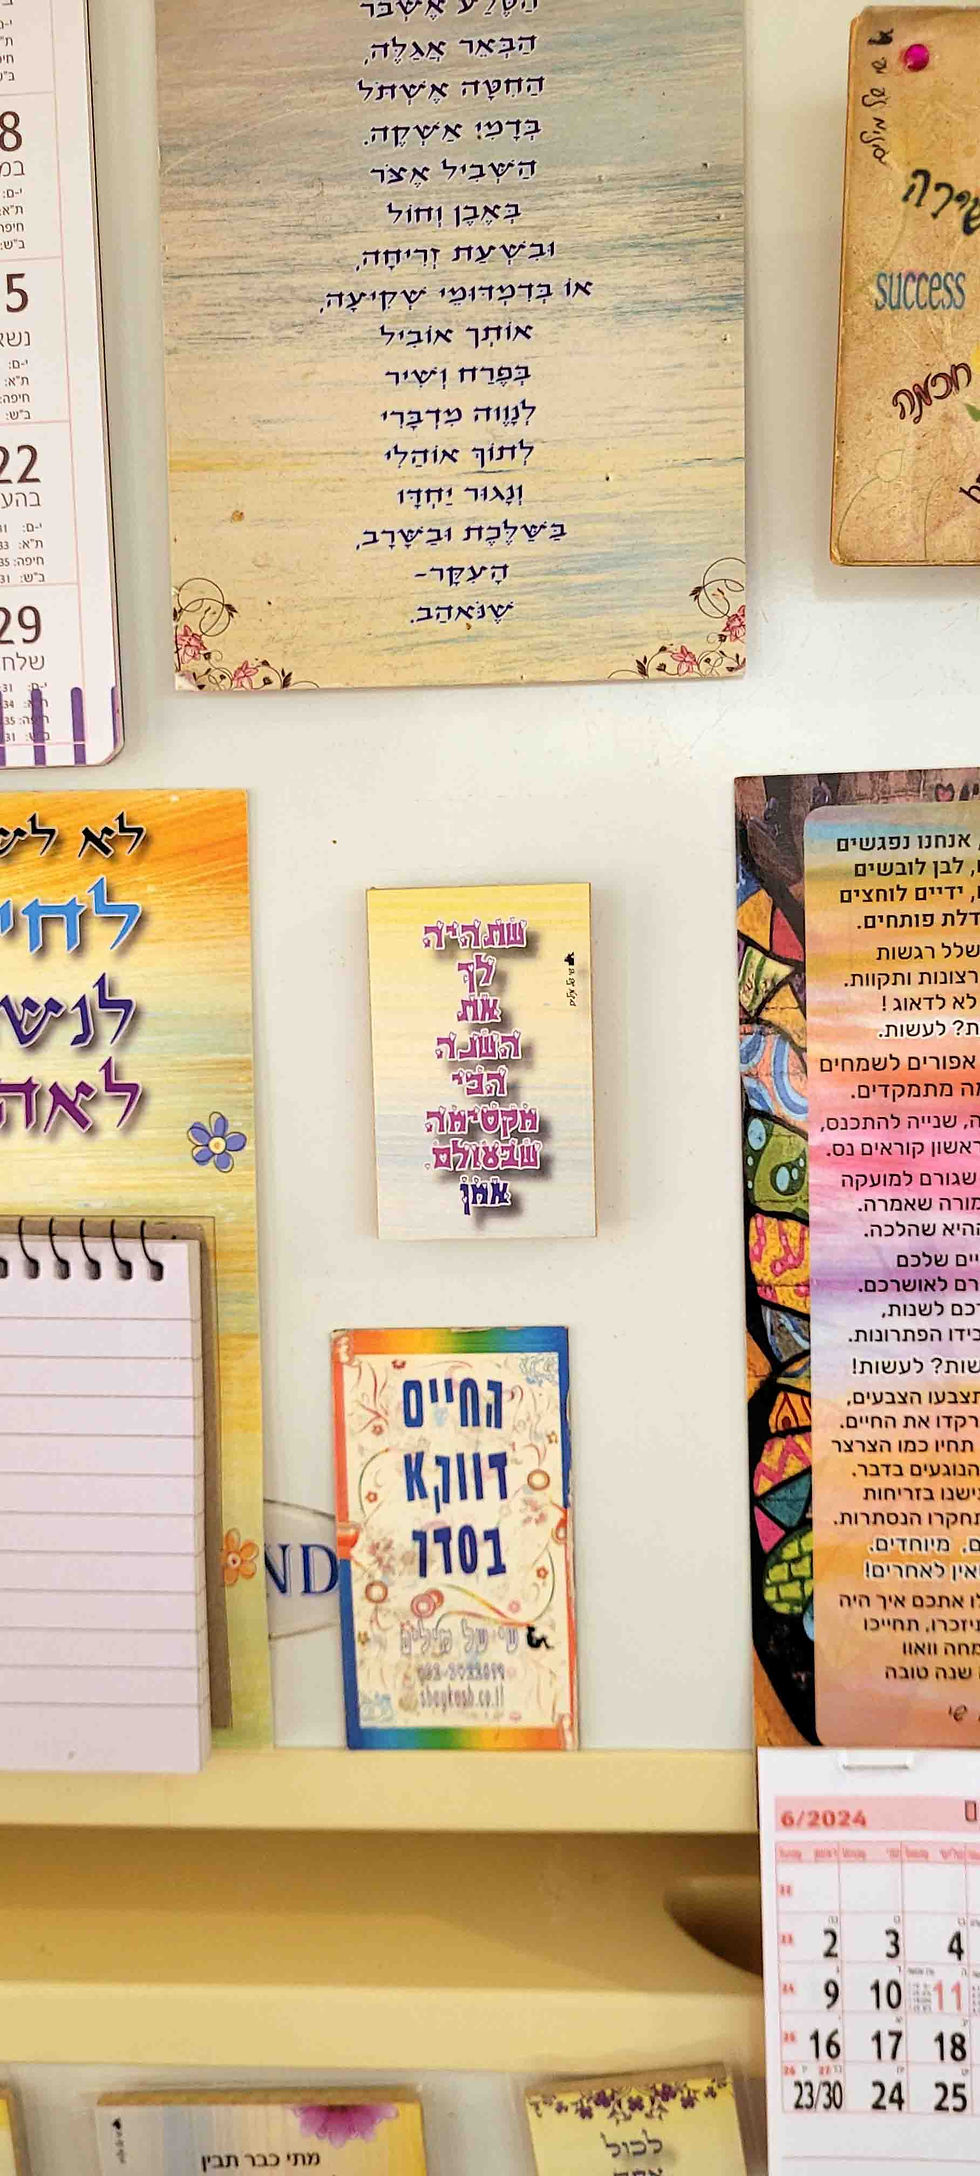 8
במ
י-ם:
ת"א:
חיפה:
ב"ש:
5
נשא
י-ם:
ת"א:
חיפה:
ב"ש:
22
בהע
י-ם:
ת"א:
חיפה:
ב"ש:
29
שלח
הַסֶּלַע אֶשְׁבֹּר
הַבְּאֵר אֲגַלֶּה,
הַחִטָּה אֶשְׁתֹּל
בְּדָמִי אַשְׁקֶה.
הַשְּׁבִיל אֶצֹּר
בְּאֶבֶן וְחוֹל
וּבִשְׁעַת זְרִיחָה,
אוֹ בְּדִמְדּוּמֵי שְׁקִיעָה,
אוֹתְךָ אוֹבִיל
בְּפֶרַח וְשִׁיר
לִנְוֵוה מִדְבָּרִי
לְתוֹךְ אוֹהֳלִי
וְנָגוּר יַחְדָּו
בַּשַּׁלֶּכֶת וּבַשָּׁרָב,
הָעִקָּר-
שֶׁנֹּאהַב.
שי של מילים
שירה
success
חכמה
לא לש
לחי
לנש
לאה
שתהיה
לך
את
השנה
הכי
מקסימה
שבעולם.
אמן
שי של מילים
החיים
דווקא
בסדר
שי של מילים
shaykash.co.il
ND
, אנחנו נפגשים
, לבן לובשים
, ידיים לוחצים
דלת פותחים.
שלל רגשות
רצונות ותקוות.
לא לדאוג !
ת? לעשות.
אפורים לשמחים
מה מתמקדים.
ה, שנייה להתכנס,
ראשון קוראים נס.
שגורם למועקה
מורה שאמרה.
ההיא שהלכה.
יים שלכם
רם לאושרכם.
רכם לשנות,
בידו הפתרונות.
שות? לעשות!
תצבעו הצבעים,
רקדו את החיים.
תחיו כמו הצרצר
הנוגעים בדבר.
נישנו בזריחות
תחקרו הנסתרות.
ם, מיוחדים.
ואין לאחרים!
לו אתכם איך היה
תיזכרו, תחייכו
מחה וואוו
שנה טובה
שי
6/2024
2 3 4
9 10 11
16 17 18
23/30 24 25
מתי כבר תבין
לכול